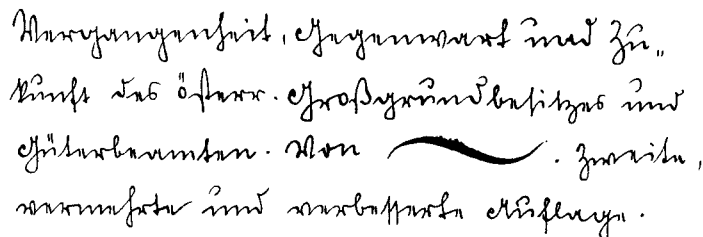 Vergangenheit, Gegenwart und Zu„
kunft des österr. Großgrundbesitzes und
Güterbeamten. Von . Zweite,
vermehrte und verbesserte Auflage.